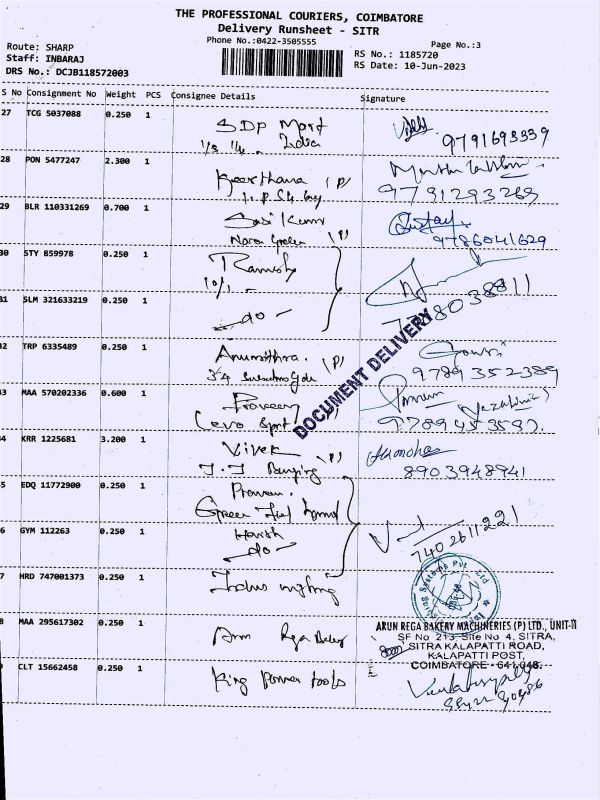 THE PROFESSIONAL COURIERS, COIMBATORE
Delivery Runsheet - SITR
Phone No.:0422-3505555
Page No.:3
Route: SHARP
Staff: INBARAJ
DRS No.: DCJB118572003
RS No.: 1185720
RS Date: 10-Jun-2023
S No Consignment No Weight PCS Consignee Details Signature
27 TCG 5037088 0.250 1 SDP Mart
India
9791693339
28 PON 5477247 2.300 1 Keerthana (P)
9791293269
29 BLR 110331269 0.700 1 Sasi Kumar
(P) 9786041629
30 STY 859978 0.250 1 Ramesh
10/1
31 SLM 321633219 0.250 1 do
DOCUMENT DELIVERY
32 TRP 6335489 0.250 1 Anumithra. (P) Gowri
34 9789352389
33 MAA 570202336 0.600 1 Praveen
34 KRR 1225681 3.200 1 Vivek (P) Manoha
8903948941
35 EDQ 11772900 0.250 1 Praveen.
Green
36 GYM 112263 0.250 1 Harish
do
7402611221
37 HRD 747001373 0.250 1 Indus
38 MAA 295617302 0.250 1 Arun Rega Bakery
ARUN REGA BAKERY MACHINERIES (P) LTD., UNIT-II
SF No 213, Site No 4, SITRA,
SITRA KALAPATTI ROAD,
KALAPATTI POST,
COIMBATORE - 641 048.
39 CLT 15662458 0.250 1 King Power tools